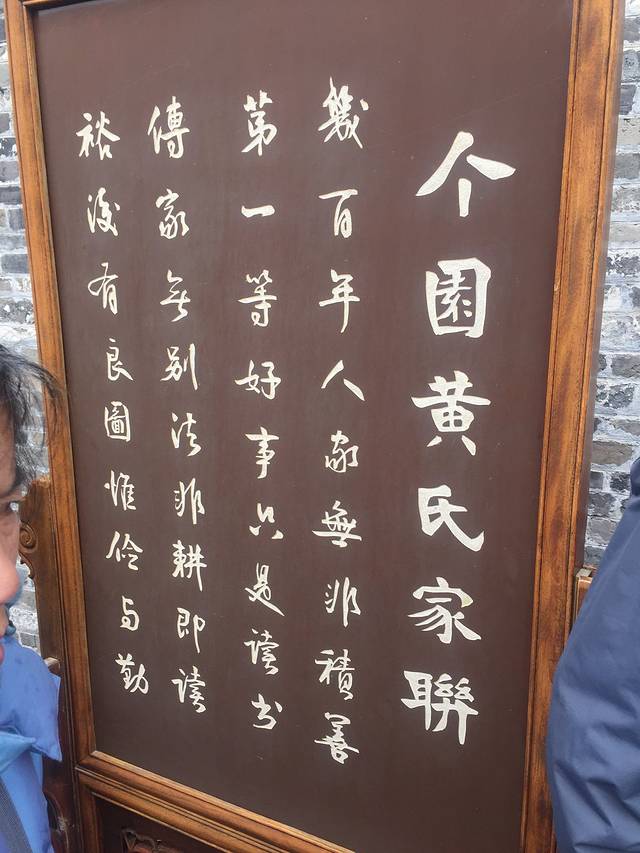 个園黄氏家聯
幾百年人家無非積善
第一等好事只是读书
傳家無别法非耕即读
裕後有良圖惟儉与勤